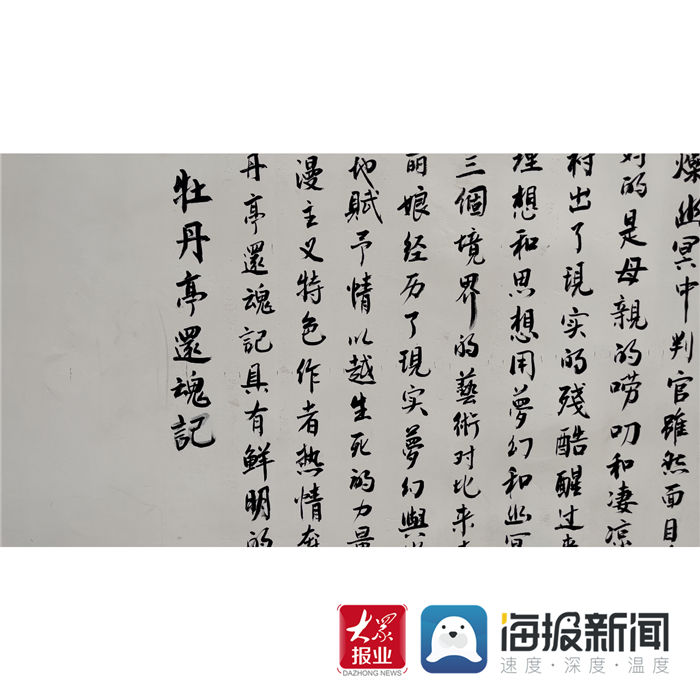 牡丹亭還魂記
丹亭還魂記具有鮮明的
漫主义特色作者热情奔
地賦予情以越生死的力量
丽娘经历了現实夢幻與
三個境界的藝術对比来
理想和思想用夢幻和幽冥
衬出了現实的殘酷醒过来
对的是母親的唠叨和凄凉
燦幽冥中判官雖然面目
大眾
报业
DAZHONG NEWS
海报新闻
速度·深度·温度